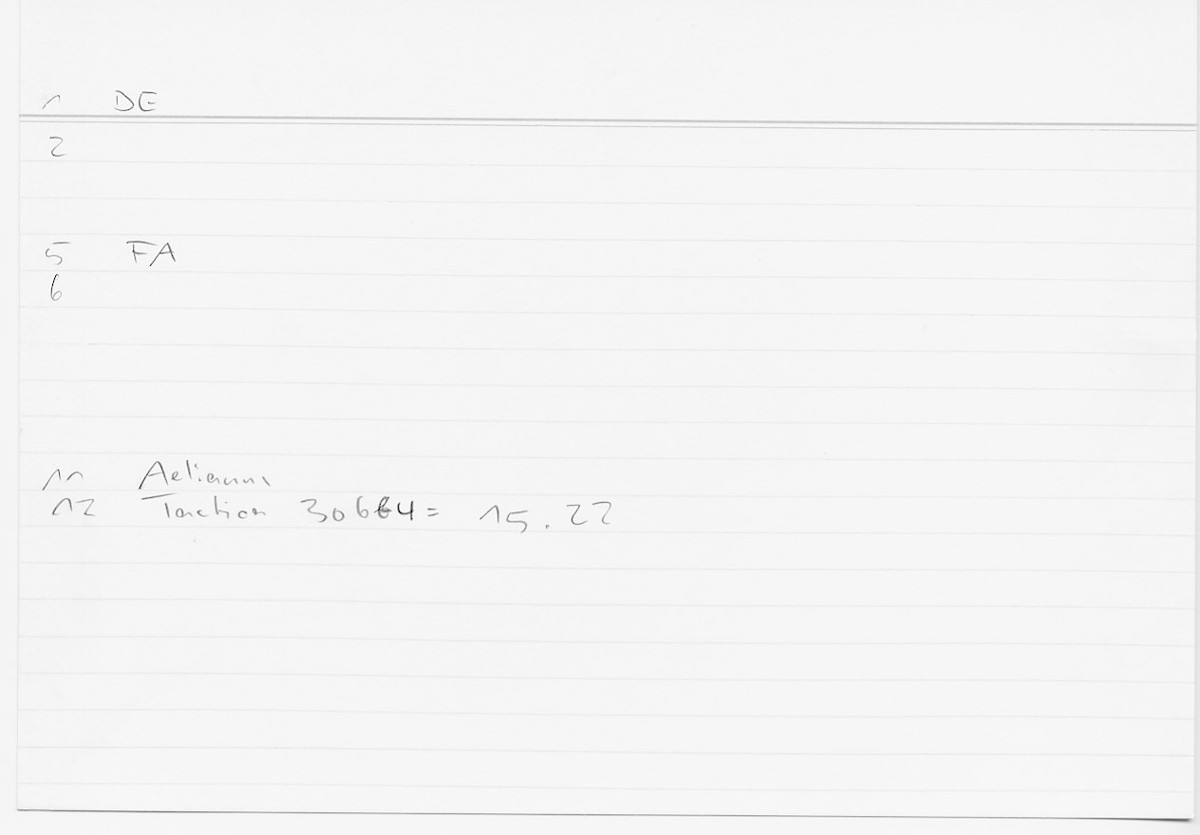 1 DE
2
5 FA
6
11 Aelianus
12 Tactica 30664 = 15.22